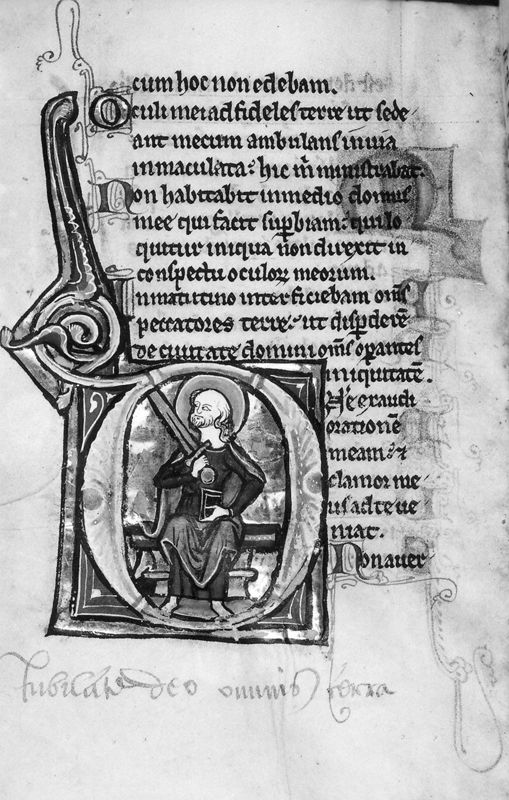 cum hoc non edebam.
Oculi mei ad fideles terre ut sede
ant mecum ambulans in uia
inmaculata: hic m̄ ministrabat.
Non habitabit in medio domus
mee qui facit suꝑbiam: qui lo
quitur iniqua non direxit in
conspectu oculoꝝ meorum.
In matutino interficiebam om̄s
peccatores terre: ut disꝑderē
de ciuitate domini om̄s oꝑantes
iniquitatē.
Dn̄e exaudi
orationē
meam: ⁊
clamor me
us ad te ue
niat.
Non auer
Iubilate deo omnis terra